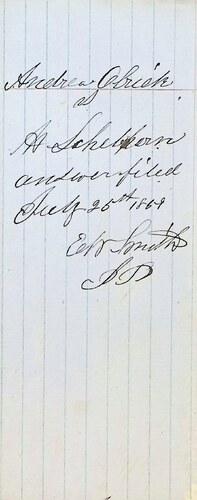 Andrew Glrick
vs
H. Schelhorn
answer filed
July 25th 1864
Ed Smith
J P